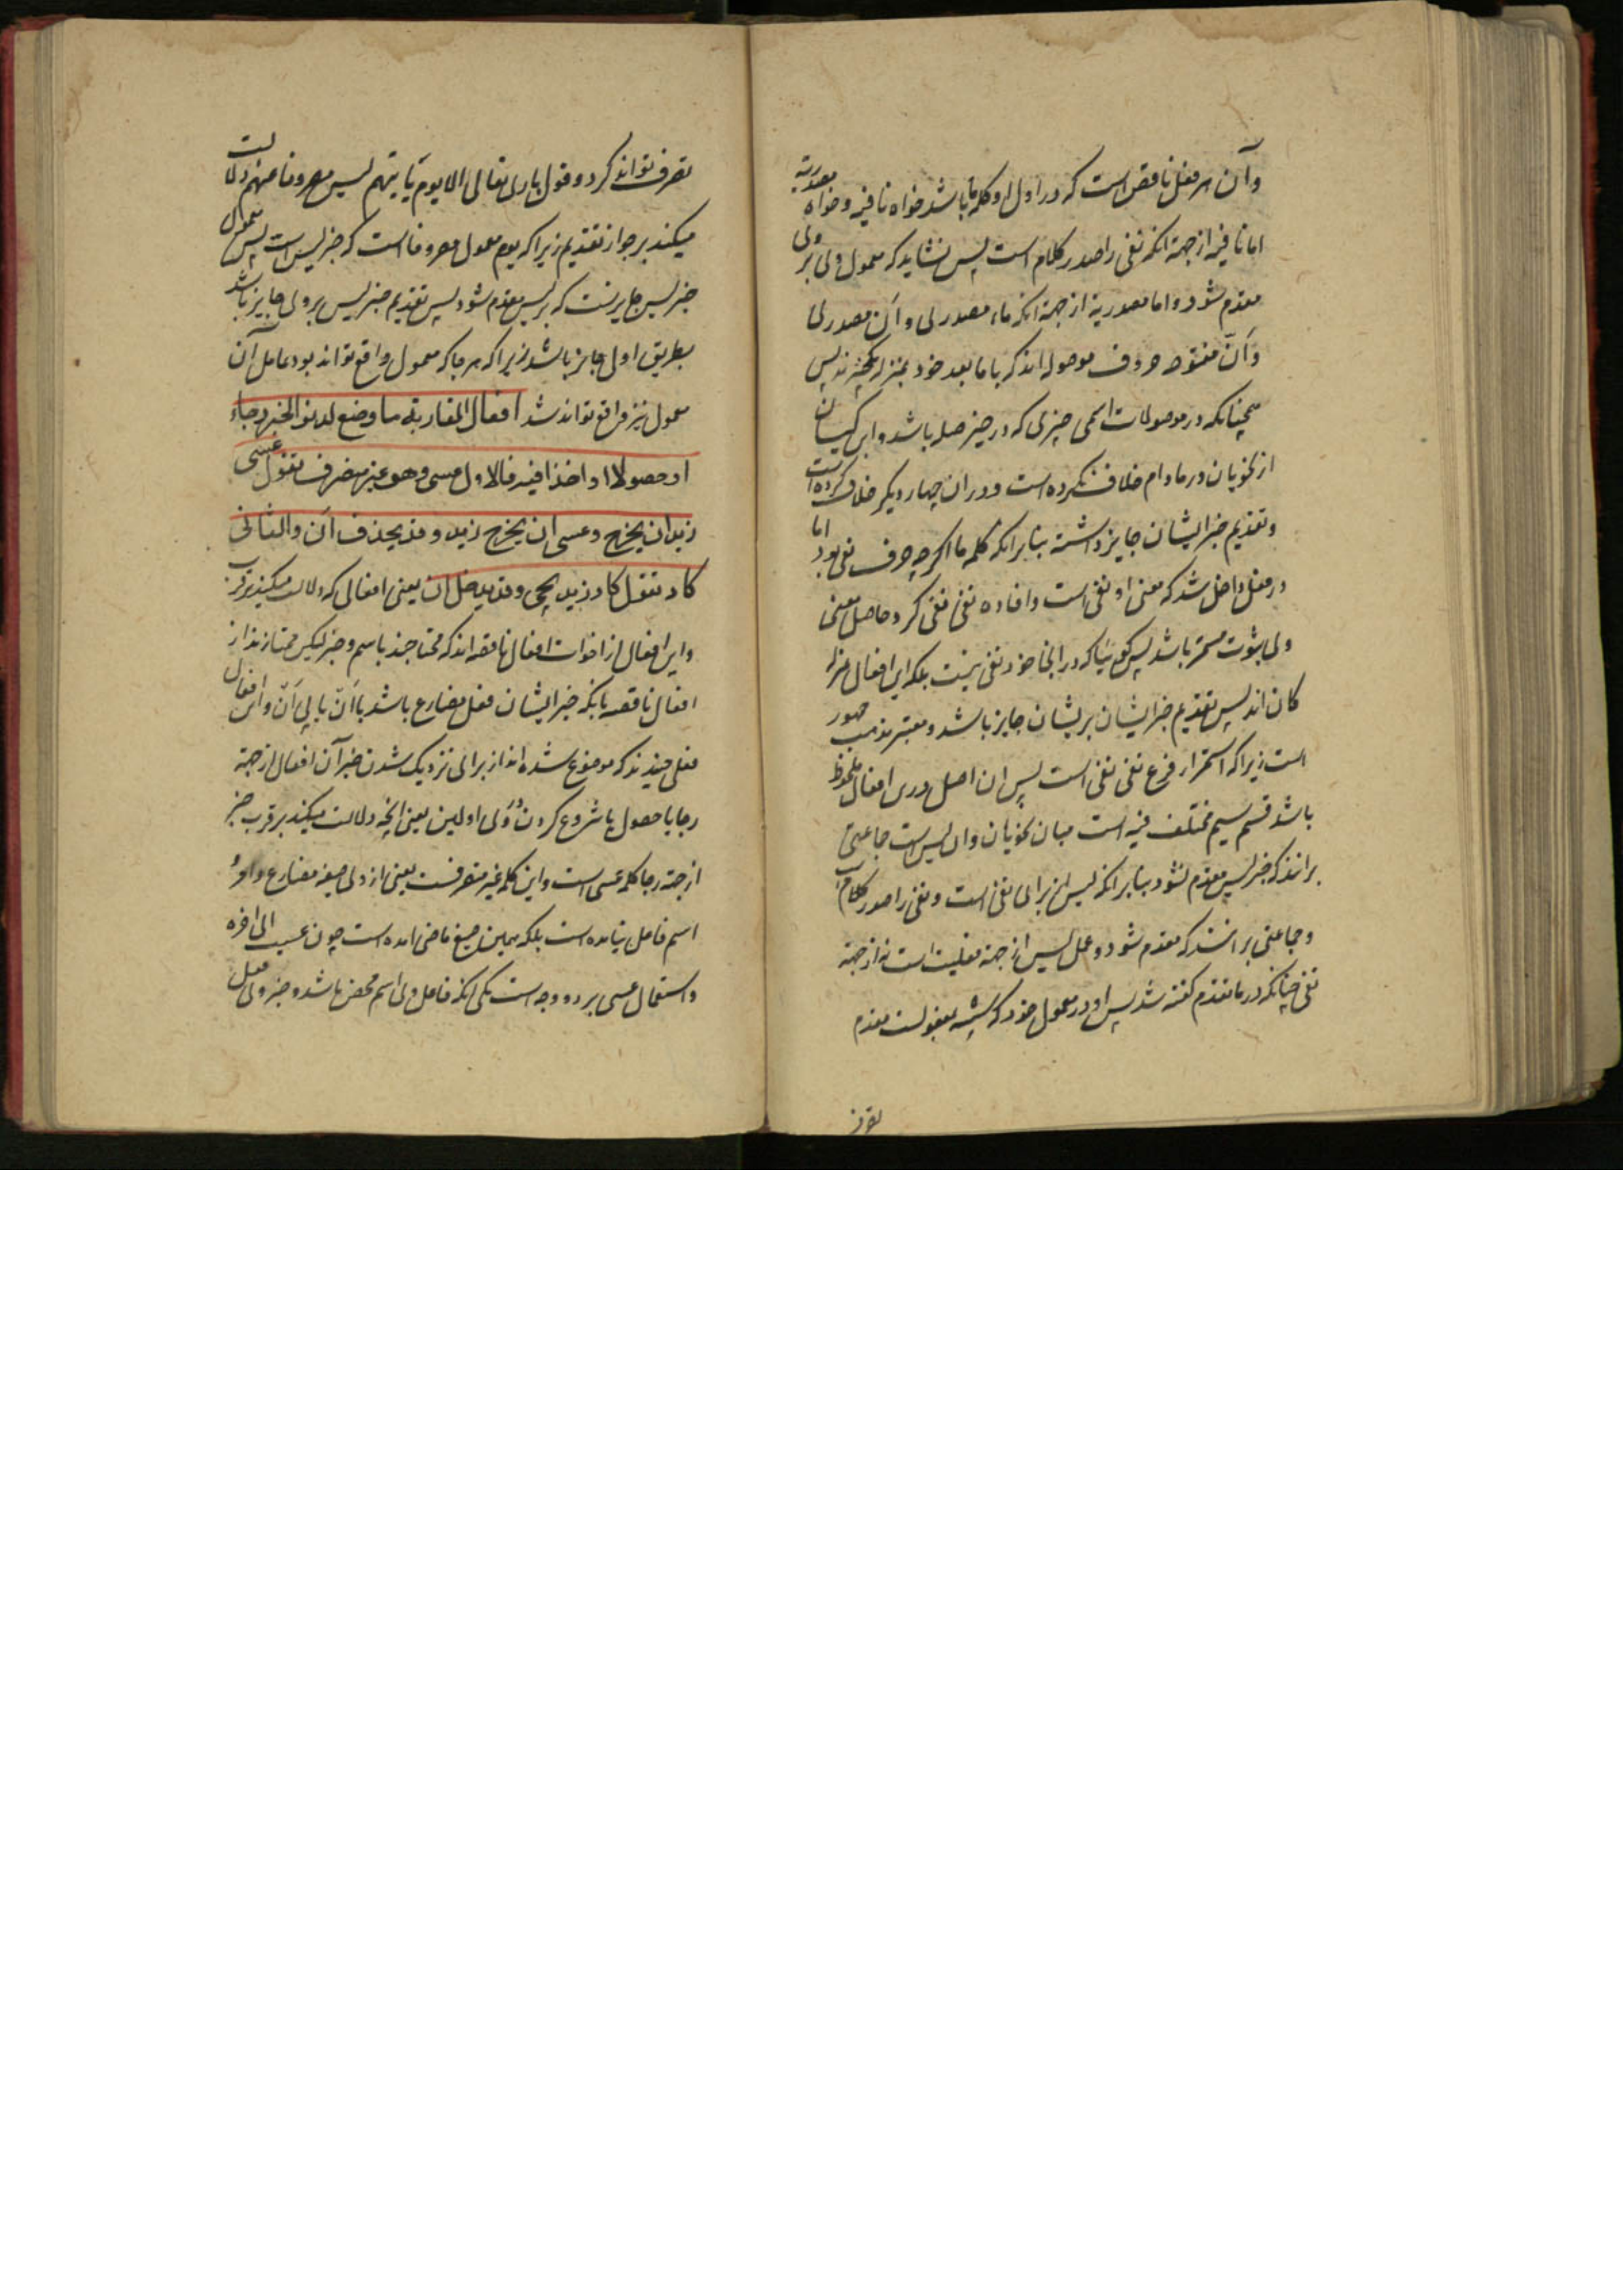 وآن هر فعل ناقص است که در اول او کلمه ما باشد خواه نافیه و خواه مصدریه
اما نافیه از جهة انکه نفی را صدر کلام است پس نشاید که معمول وی بر وی
مقدم شود و اما مصدریه از جهة انکه ماء مصدری و اَن مصدری
و اَنّ مفتوحه حروف موصوله اند که با ما بعد خود بمنزله یکچیزند پس
همچنانکه در موصولات اسمی چیزی که در حیز صله باشد و ابن کیسان
از نحویان در مادام خلاف نکرده است و دران چهار دیگر خلاف کرده است
و تقدیم خبر ایشان جایز داشته بنابرانکه کلمه ما اکرچه حرف نفی بود اما
در فعل داخل شد که معنی او نفی است و افاده نفی نفی کرد و حاصل معنی
وی ثبوت مستمر باشد پس کوییا که در اینجا خود نفی نیست بلکه این افعال بمنزله
کان اند پس تقدیم خبر ایشان بریشان جایز باشد و معتبر مذهب جمهور
است زیراکه استمرار فرع نفی نفی است پس ان اصل درین افعال ملحوظ
باشد قسم سیم مختلف فیه است میان نحویان وان لیس است جماعتی
برانند که خبر لیس مقدم نشود بنابرانکه لیس از برای نفی است و نفی را صدر کلام است
و جماعتی برانند که مقدم شود و عمل لیس از جهة فعلیت است نه از جهة
نفی چنانکه در ما تقدم کفته شد پس او در معمول خود که شبیه بمفعولست مقدم
تصرف
تصرف تواند کرد و قول باری تعالی الا یوم یأتیهم لیس مصروفا عنهم دلالت
میکند بر جواز تقدیم زیراکه یوم معمول مصروفا است که خبر لیس است پس معمول
خبر لیس جایزست که بر لیس مقدم شود پس تقدیم خبر لیس بر وی جایز باشد
بطریق اولی جایز باشد زیراکه هر جا که معمول واقع تواند بود عامل آن
معمول نیز واقع تواند شد افعال المقاربة ما وضع لدنو الخبر رجاء
او حصولا او اخذا فیه فالاول عسی وهو غیر متصرف تقول عسی
زید ان یخرج وعسی ان یخرج زید وقد یحذف اَن والثانی
کاد تقول کاد زید یجی وقد یدخل ان یعنی افعالی که دلالت میکند بر قرب
و این افعال از اخوات افعال ناقصه اند که محتاجند باسم و خبر لیکن ممتازند از
افعال ناقصه بانکه خبر ایشان فعل مضارع باشد با اَن یا بی اَن و این افعال
فعلی چندند که موضوع شده اند از برای نزدیک شدن خبر آن افعال از جهة
رجا یا حصول یا شروع کردن در وی اولین یعنی انچه دلالت میکند بر قرب خبر
از جهة رجا کلمه عسی است و این کلمه غیر متصرفست یعنی از وی صیغه مضارع و امر و
اسم فاعل نیامده است بلکه همین صیغه ماضی امده است چون عسیت الی اخره
و استعمال عسی بر دو وجه است یکی انکه فاعل وی اسم محض باشد و خبر وی فعل